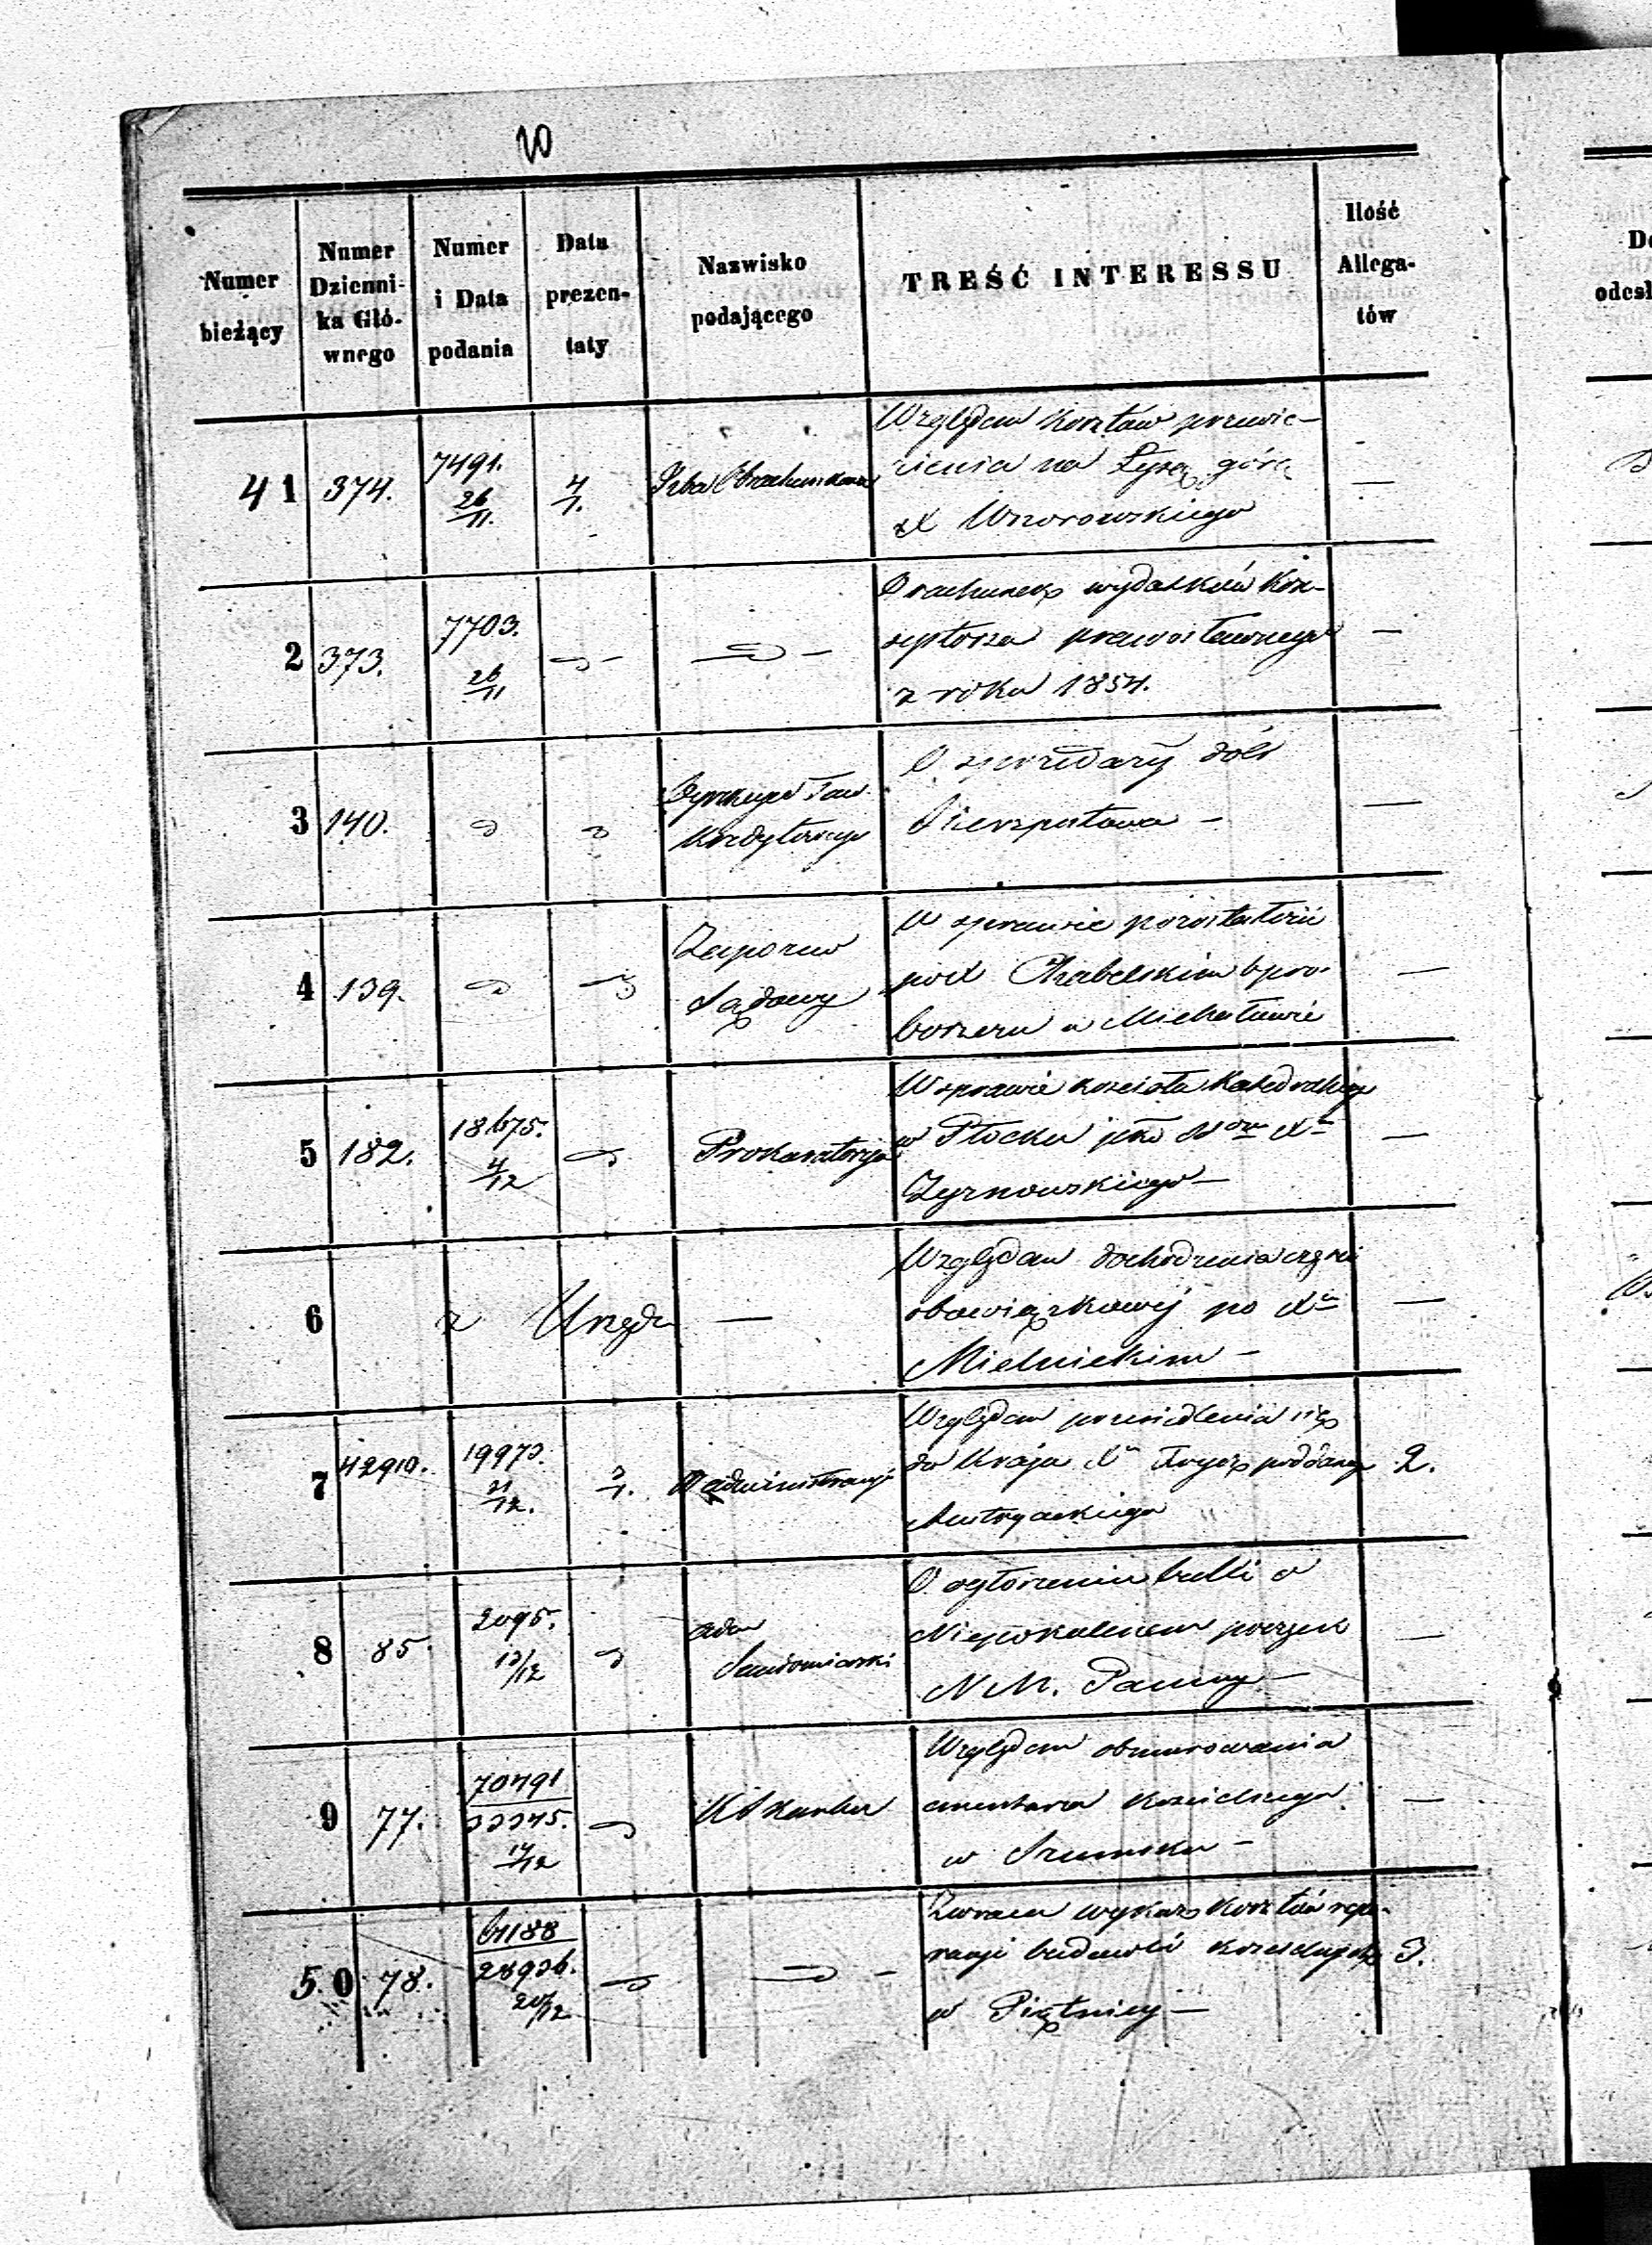 20
Numer bieżący
Numer Dzienni- ka Głó- wnego
Numer i Data podania
Data prezen- taty
Nazwisko podającego
TREŚĆ INTERESSU
Ilość Allega- tów
41 374. 7491. 26/11. 4/1. Izba Obrachunkowa
Względem kosztów przewie-
zienia na Łysą górę
X Worowskiego —
2 373. 7703. 26/11
wydatków Kon-
systorza prawosławnego —
z roku 1854.
3 140. Dyrekcya Tow.
Kredytowego
O sprzedaży dóbr
—
4 139. Zapozew
Sądowy
W sprawie pozostałości
po X Chabelskim b pro-
boszczu w Michałowie —
5 182. 18675. 4/12 Prokuratorya
W sprawie kościoła Katedralnego
w Płocku
Zyznowskiego — —
6 z Urzędu —
Względem dochodzenia części
obowiązkowej po Xu —
Mielnickim —
7 42910. 19973. 21/12. 3/1. administracyi
Względem przesiedlenia się
do Kraju Xa poddanego 2.
Austryackiego
8 85. 2095. 13/12 Adm
Sandomierski
O ogłoszeniu bulli o
Niepokalanem poczęciu —
N M. Panny —
9 77. 70791/33375. 17/12 K Skarbu
Względem obmurowania
cmentarza kościelnego —
w Szumsku —
50 78. 28936. 20/12
Zwraca wykaz kosztów repe-
racyi budowli 3.
w Piątnicy —
De
odesł